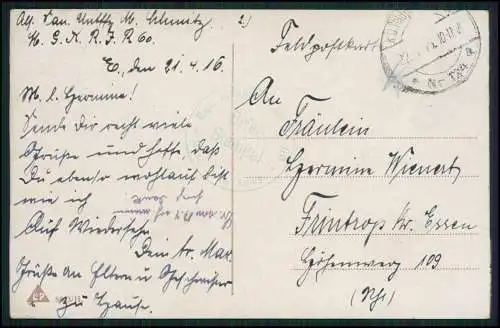 Abs. San. Untffz. M. Schmitz
2.)
M. G. K. R. I. R. 60.
E., den 21.4.16
M. l. Hermine!
Sende Dir recht viele
Grüße und hoffe, daß
Du ebenso wohlauf bist
wie ich
Auf Wiedersehn
Dein tr. Max.
Grüße an Eltern u Geschwister
zu Hause.
Feldpostkarte
An
Fräulein
Hermine Wienert
Frintrop Kr. Essen
Höhenweg 109
(Rhl.)